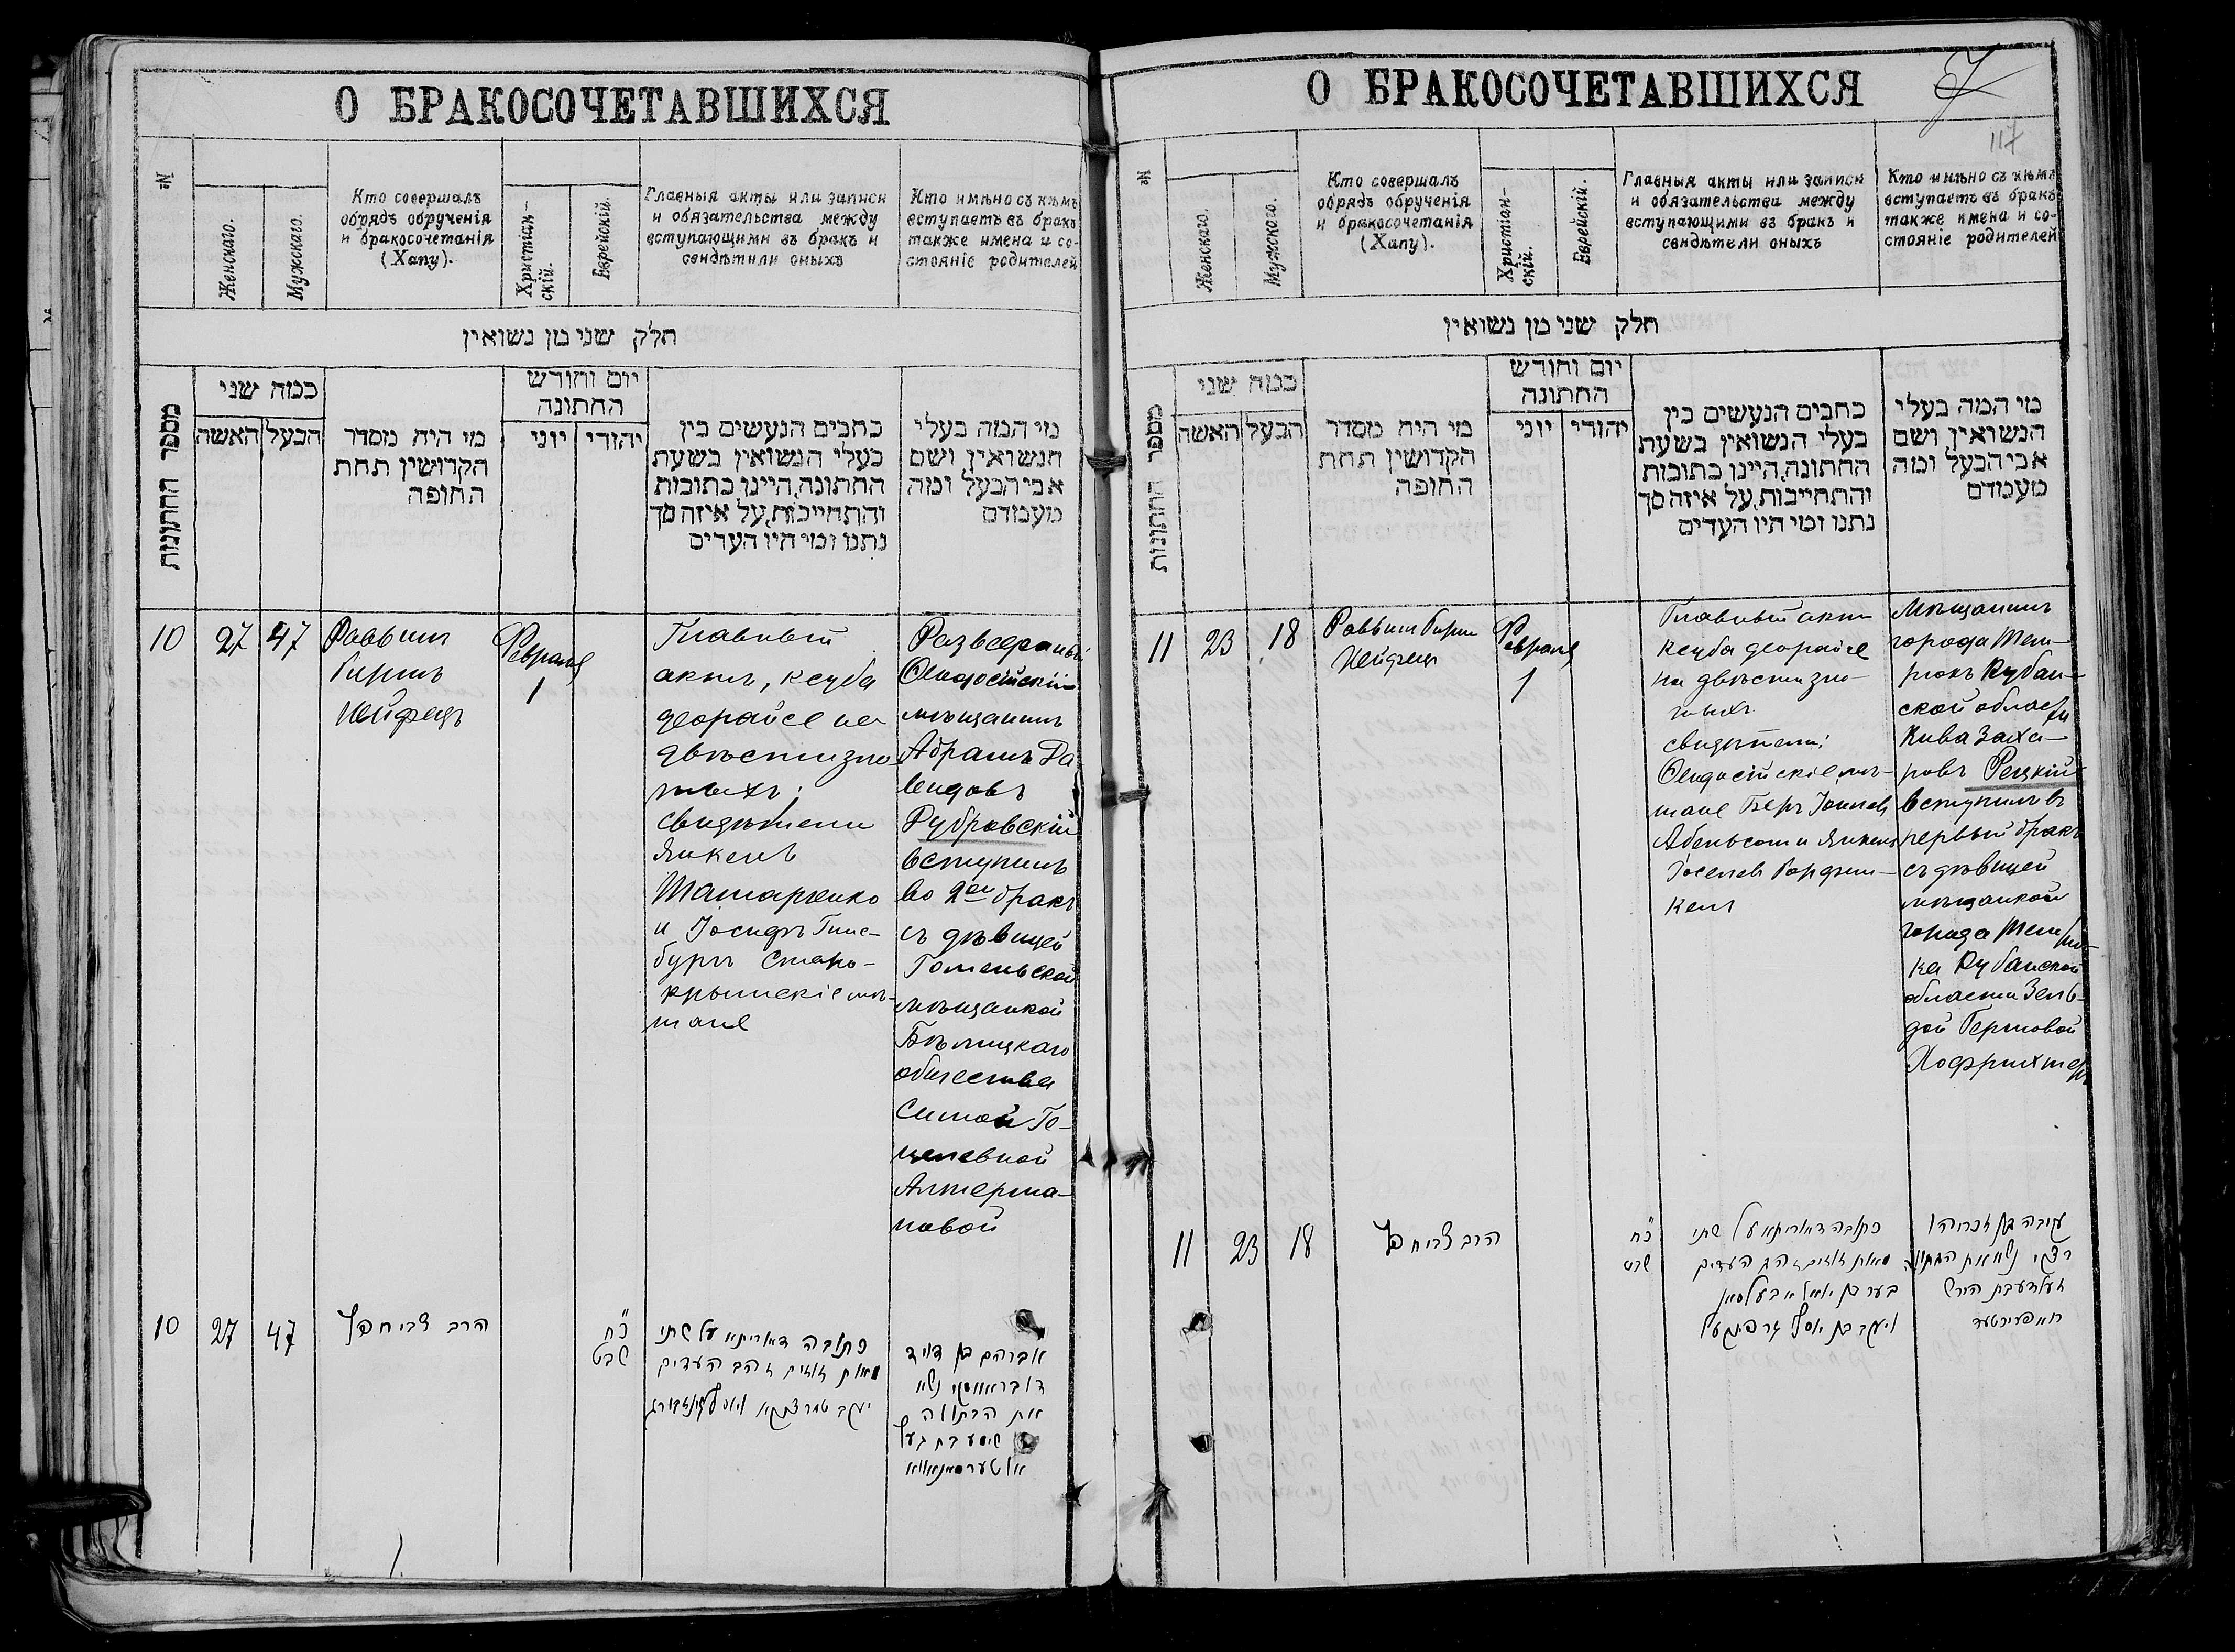 О БРАКОСОЧЕТАВШИХСЯ
№
Женскаго.
Мужскаго.
Кто совершалъ
обрядъ обрученія
и бракосочетанія
(Хапу).
Христіан-
скій.
Еврейскій.
Главныя акты или записи
и обязательства между
вступающими въ бракъ и
свидѣтили оныхъ
Кто имѣно съ кѣмъ
вступаетъ въ бракъ
также имена и со-
стояніе родителей
חלק שני מן נשואין
מספר החתונות
כמה שני
האשה
הבעל
מי היה מסדר
הקדושין תחת
החופה
יום וחודש
החתונה
יוני
יהודי
כתבים הנעשים בין
בעלי הנשואין בשעת
החתונה, היינו כתובות
והתחייבות, על איזה סך
נתנו ומי היו העדים
מי המה בעלי
הנשואין ושם
אבי הבעל ומה
מעמדם
10
27
47
Раввинъ
Гиршъ
Хейфецъ
Февраля
1
Главный
актъ, ксуба
деорайсе на
двѣсти зло-
тыхъ;
свидѣтели
Янкель
Татаренко
и Іосифъ Гинс-
бургъ Старо-
крымскіе мѣ-
щане
Разведеный
Ѳеодосійскій
мѣщанинъ
Абрамъ Да
видовъ
Дубровскій
вступилъ
во 2ой бракъ
съ дѣвицей
Гомельской
мѣщанкой
Бѣлицкаго
общества
Симой Ге-
целевной
Алтерма-
новой
10
27
47
הרב צבי חפץ
כ״ח
שבט
כתובה דאוריתא על שתי
מאות זוזים זהב העדים
יעקב טטרצנקא ויוסף גינזבורג
אברהם בן דויד
דובראווסקי נשא
את הבתולה
סימע בת געץ
אלטערמאנאווא
О БРАКОСОЧЕТАВШИХСЯ
7
117
№
Женскаго.
Мужскаго.
Кто совершалъ
обрядъ обрученія
и бракосочетанія
(Хапу).
Христіан-
скій.
Еврейскій.
Главныя акты или записи
и обязательства между
вступающими въ бракъ и
свидѣтели оныхъ
Кто имѣно съ кѣмъ
вступаетъ въ бракъ
также имена и со-
стояніе родителей
חלק שני מן נשואין
מספר החתונות
כמה שני
האשה
הבעל
מי היה מסדר
הקדושין תחת
החופה
יום וחודש
החתונה
יוני
יהודי
כתבים הנעשים בין
בעלי הנשואין בשעת
החתונה, היינו כתובות
והתחייבות, על איזה סך
נתנו ומי היו העדים
מי המה בעלי
הנשואין ושם
אבי הבעל ומה
מעמדם
11
23
18
Раввинъ Гирш
Хейфецъ
Февраля
1
Главный актъ
ксуба деорайсе
на двѣсти зло-
тыхъ.
свидѣтели:
Ѳеодосійскіе мѣ-
щане Беръ Іоилевъ
Абельсон и Янкель
Іоселевъ Гарфин-
кель
Мѣщанинъ
города Тем-
рюкъ Кубан-
ской области
Кива Заха-
ровъ Рецкій
вступилъ въ
первый бракъ
съ дѣвицей
мѣщанкой
города Темрю-
ка Кубанской
области Зель-
дой Гершовой
Хофрихтеръ
11
23
18
הרב צבי חפץ
כ״ח
שבט
כתובה דאוריתא על שתי
מאות זוזים זהב העדים
בער בן יואל אבעלסאן
ויעקב בן יוסף גרפינקעל
עקיבה בן זכריהו
רצקי נשא את הבתולה
זעלדע בת הירש